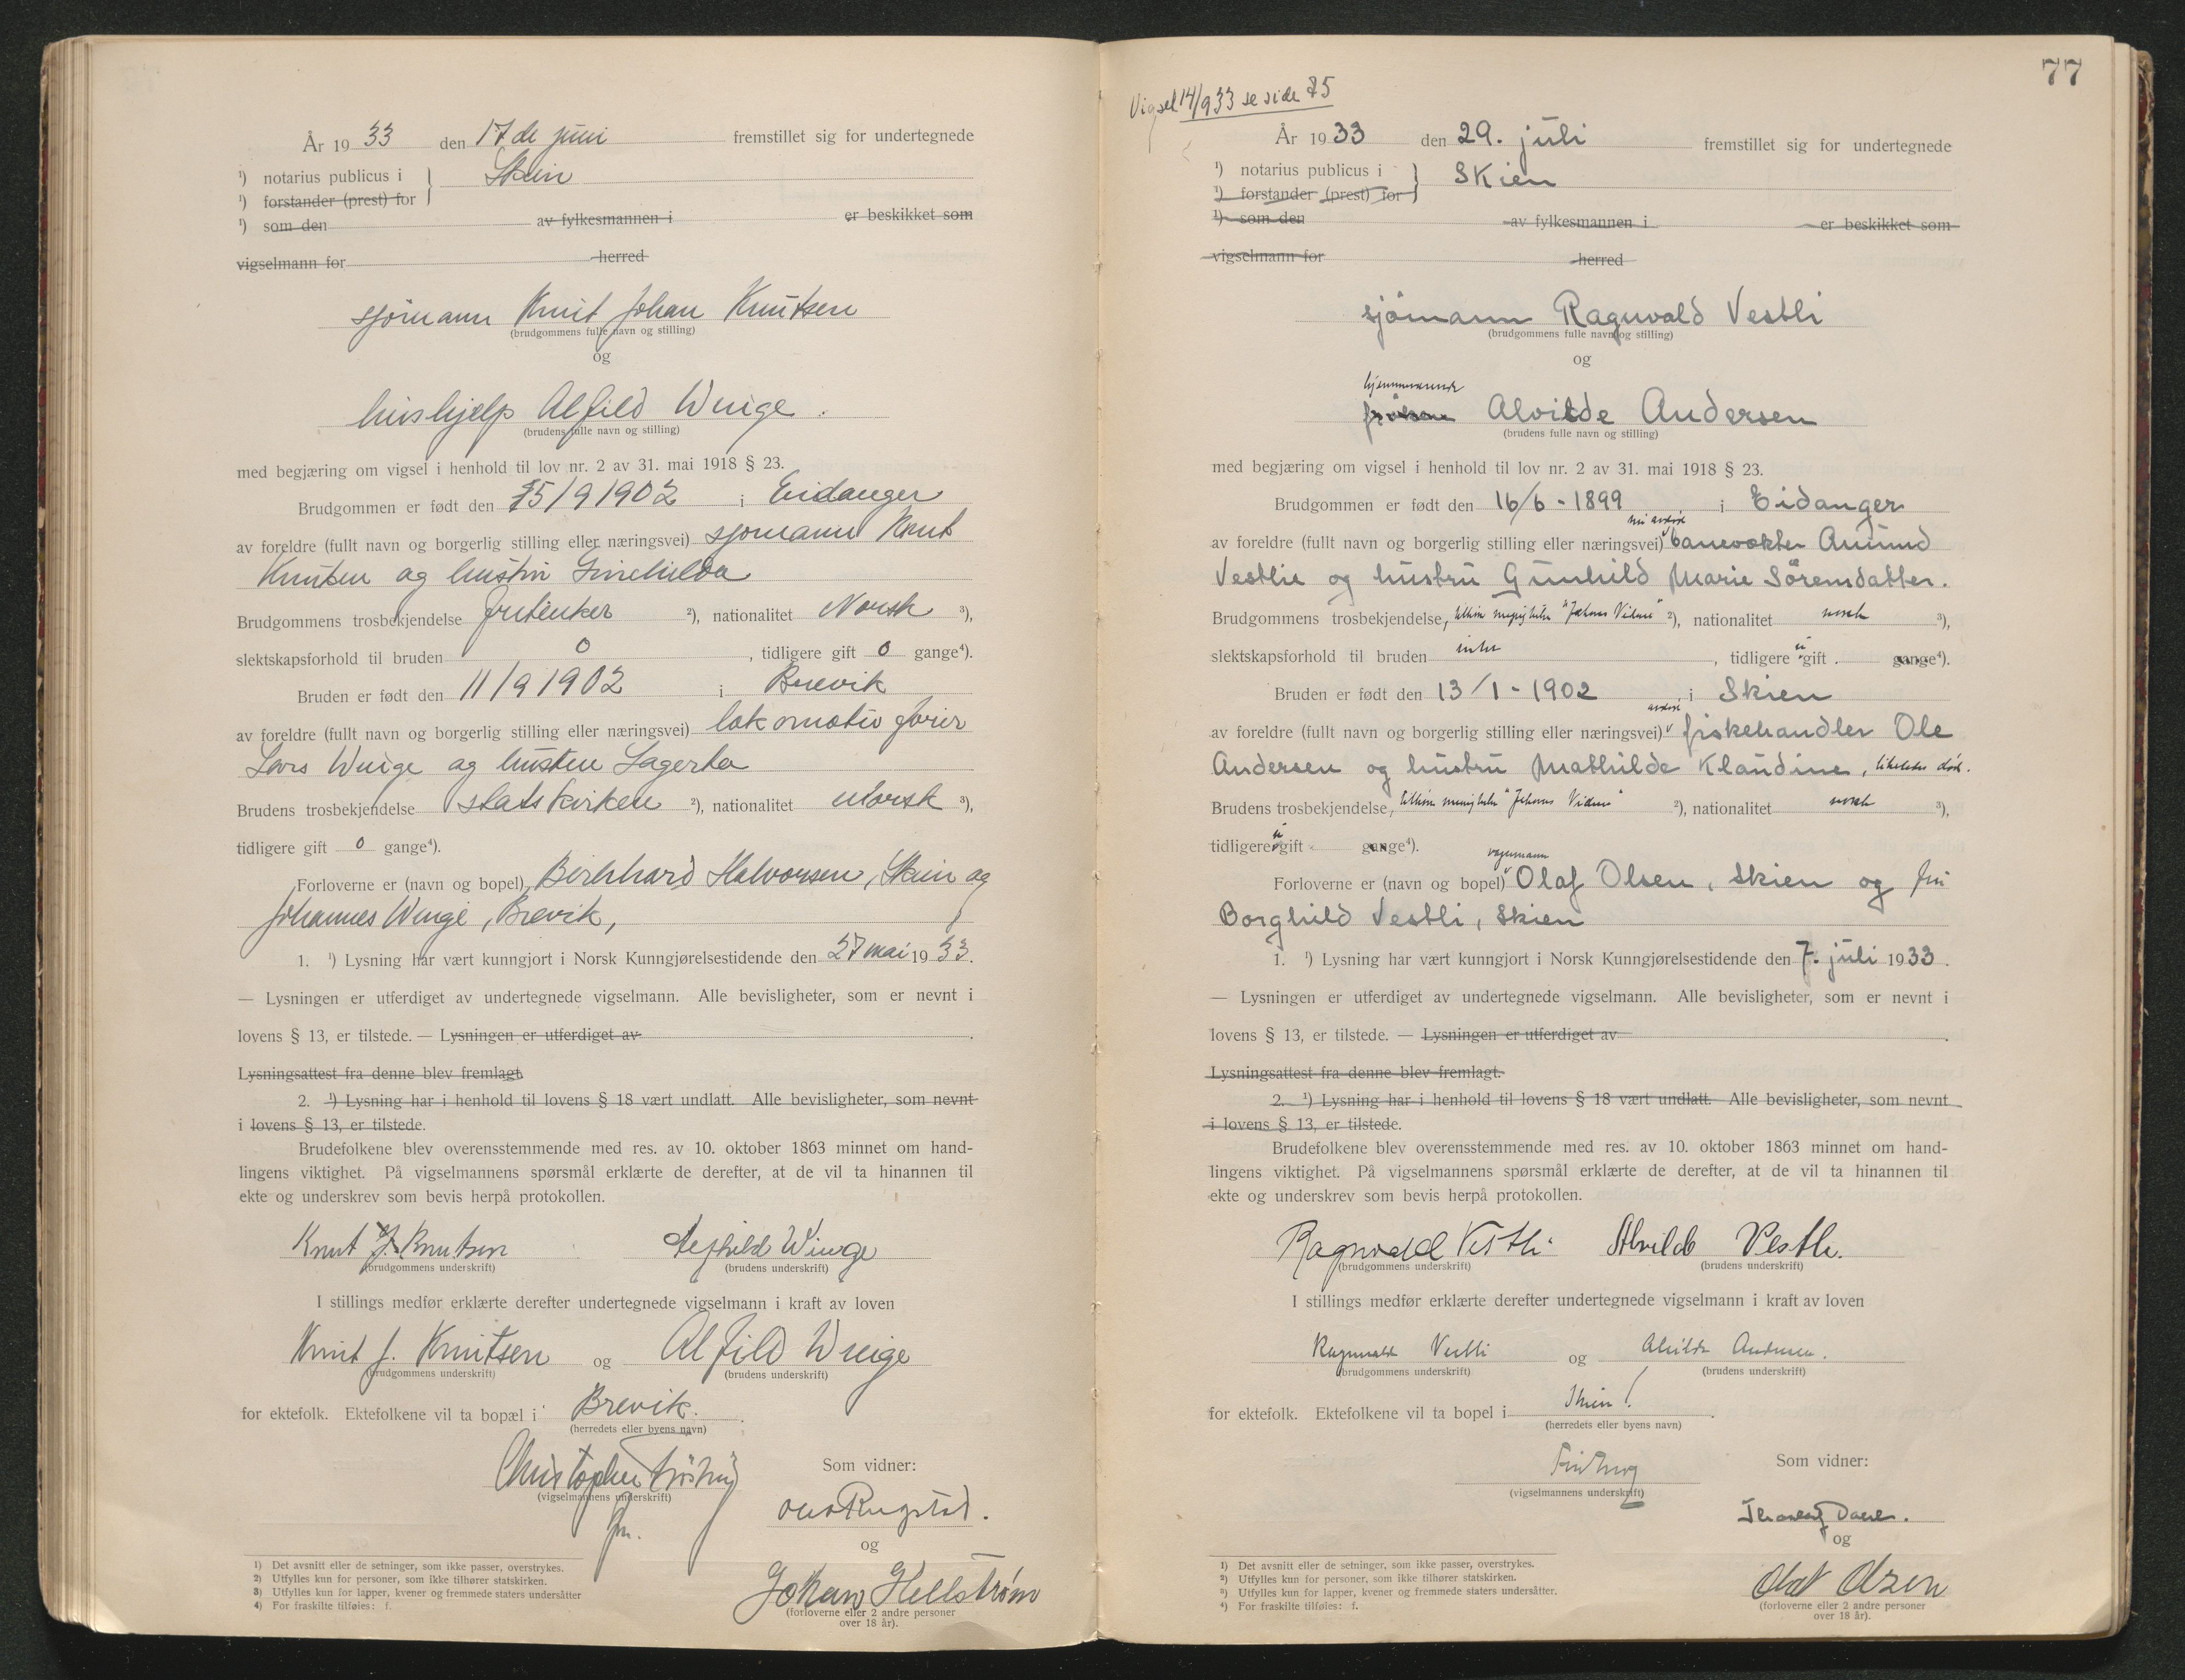 År 1933 den 17de juni fremstillet sig for undertegnede
¹) notarius publicus i } Skien
¹) forstander (prest) for
¹) som den av fylkesmannen i er beskikket som
vigselmann for herred
sjømann Knut Johan Knutsen
(brudgommens fulle navn og stilling)
og
hushjelp Alfild Winge.
(brudens fulle navn og stilling)
med begjæring om vigsel i henhold til lov nr. 2 av 31. mai 1918 § 23.
Brudgommen er født den 25/9 1902 i Eidanger
av foreldre (fullt navn og borgerlig stilling eller næringsvei) sjømann Knut
Knutsen og hustru
Brudgommens trosbekjendelse fritenker ²), nationalitet Norsk ³),
slektskapsforhold til bruden 0, tidligere gift 0 gange⁴).
Bruden er født den 11/9 1902 i Brevik
av foreldre (fullt navn og borgerlig stilling eller næringsvei) lokomotivfører
Lars Winge og hustru Lagerta
Brudens trosbekjendelse statskirken ²), nationalitet Norsk ³),
tidligere gift 0 gange⁴).
Forloverne er (navn og bopel) Birkhard Halvorsen, Skien og
Johannes Winge, Brevik,
1. ¹) Lysning har vært kunngjort i Norsk Kunngjørelsestidende den 27 mai 1933.
— Lysningen er utferdiget av undertegnede vigselmann. Alle bevisligheter, som er nevnt i
lovens § 13, er tilstede. — Lysningen er utferdiget av
Lysningsattest fra denne blev fremlagt.
2. ¹) Lysning har i henhold til lovens § 18 vært undlatt. Alle bevisligheter, som nevnt
i lovens § 13, er tilstede.
Brudefolkene blev overensstemmende med res. av 10. oktober 1863 minnet om hand-
lingens viktighet. På vigselmannens spørsmål erklærte de derefter, at de vil ta hinannen til
ekte og underskrev som bevis herpå protokollen.
Knut J. Knutsen Alfhild Winge
(brudgommens underskrift) (brudens underskrift)
I stillings medfør erklærte derefter undertegnede vigselmann i kraft av loven
Knut J. Knutsen og Alfild Winge
(brudgommens underskrift) (brudens underskrift)
for ektefolk. Ektefolkene vil ta bopæl i Brevik.
(herredets eller byens navn)
Christopher
(vigselmannens underskrift)
Som vidner:
Rugstad.
og
Johan Hellstrøm
(forloverne eller 2 andre personer
over 18 år).
1) Det avsnitt eller de setninger, som ikke passer, overstrykes.
2) Utfylles kun for personer, som ikke tilhører statskirken.
3) Utfylles kun for lapper, kvener og fremmede staters undersåtter
4) For fraskilte tilføies: f.
77
Vigsel 14/9 33 se side 85
År 1933 den 29. juli fremstillet sig for undertegnede
¹) notarius publicus i } Skien
¹) forstander (prest) for
¹) som den av fylkesmannen i er beskikket som
vigselmann for herred
sjömann Ragnvald Vestli
(brudgommens fulle navn og stilling)
og
hjemmeværende
frøken Alvilde Andersen
(brudens fulle navn og stilling)
med begjæring om vigsel i henhold til lov nr. 2 av 31. mai 1918 § 23.
Brudgommen er født den 16/6 - 1899 i Eidanger
nu avdöde
av foreldre (fullt navn og borgerlig stilling eller næringsvei) banevokter Amund
Vestlie og hustru Gunhild Marie Sörensdatter.
Brudgommens trosbekjendelse, tilhører menigheten "Jehovas Vidner" ²), nationalitet norsk ³),
slektskapsforhold til bruden intet, tidligere ei gift gange⁴).
Bruden er født den 13/1 - 1902, i Skien
avdöde
av foreldre (fullt navn og borgerlig stilling eller næringsvei) fiskehandler Ole
Andersen og hustru Mathilde Klaudine, likeledes död.
Brudens trosbekjendelse, tilhører menigheten "Jehovas Vidner" ²), nationalitet norsk ³),
tidligere ei gift gange⁴).
vognmann
Forloverne er (navn og bopel) Olaf Olsen, Skien og fru
Borghild Vestli, Skien
1. ¹) Lysning har vært kunngjort i Norsk Kunngjørelsestidende den 7. juli 1933.
— Lysningen er utferdiget av undertegnede vigselmann. Alle bevisligheter, som er nevnt i
lovens § 13, er tilstede. — Lysningen er utferdiget av
Lysningsattest fra denne blev fremlagt.
2. ¹) Lysning har i henhold til lovens § 18 vært undlatt. Alle bevisligheter, som nevnt
i lovens § 13, er tilstede.
Brudefolkene blev overensstemmende med res. av 10. oktober 1863 minnet om hand-
lingens viktighet. På vigselmannens spørsmål erklærte de derefter, at de vil ta hinannen til
ekte og underskrev som bevis herpå protokollen.
Ragnvald Vestli Alvilde Vestli.
(brudgommens underskrift) (brudens underskrift)
I stillings medfør erklærte derefter undertegnede vigselmann i kraft av loven
Ragnvald Vestli og Alvilde Andersen.
(brudgommens underskrift) (brudens underskrift)
for ektefolk. Ektefolkene vil ta bopel i Skien.
(herredets eller byens navn)
(vigselmannens underskrift)
Som vidner:
og
Olaf Olsen
(forloverne eller 2 andre personer
over 18 år).
1) Det avsnitt eller de setninger, som ikke passer, overstrykes.
2) Utfylles kun for personer, som ikke tilhører statskirken.
3) Utfylles kun for lapper, kvener og fremmede staters undersåtter.
4) For fraskilte tilføies: f.